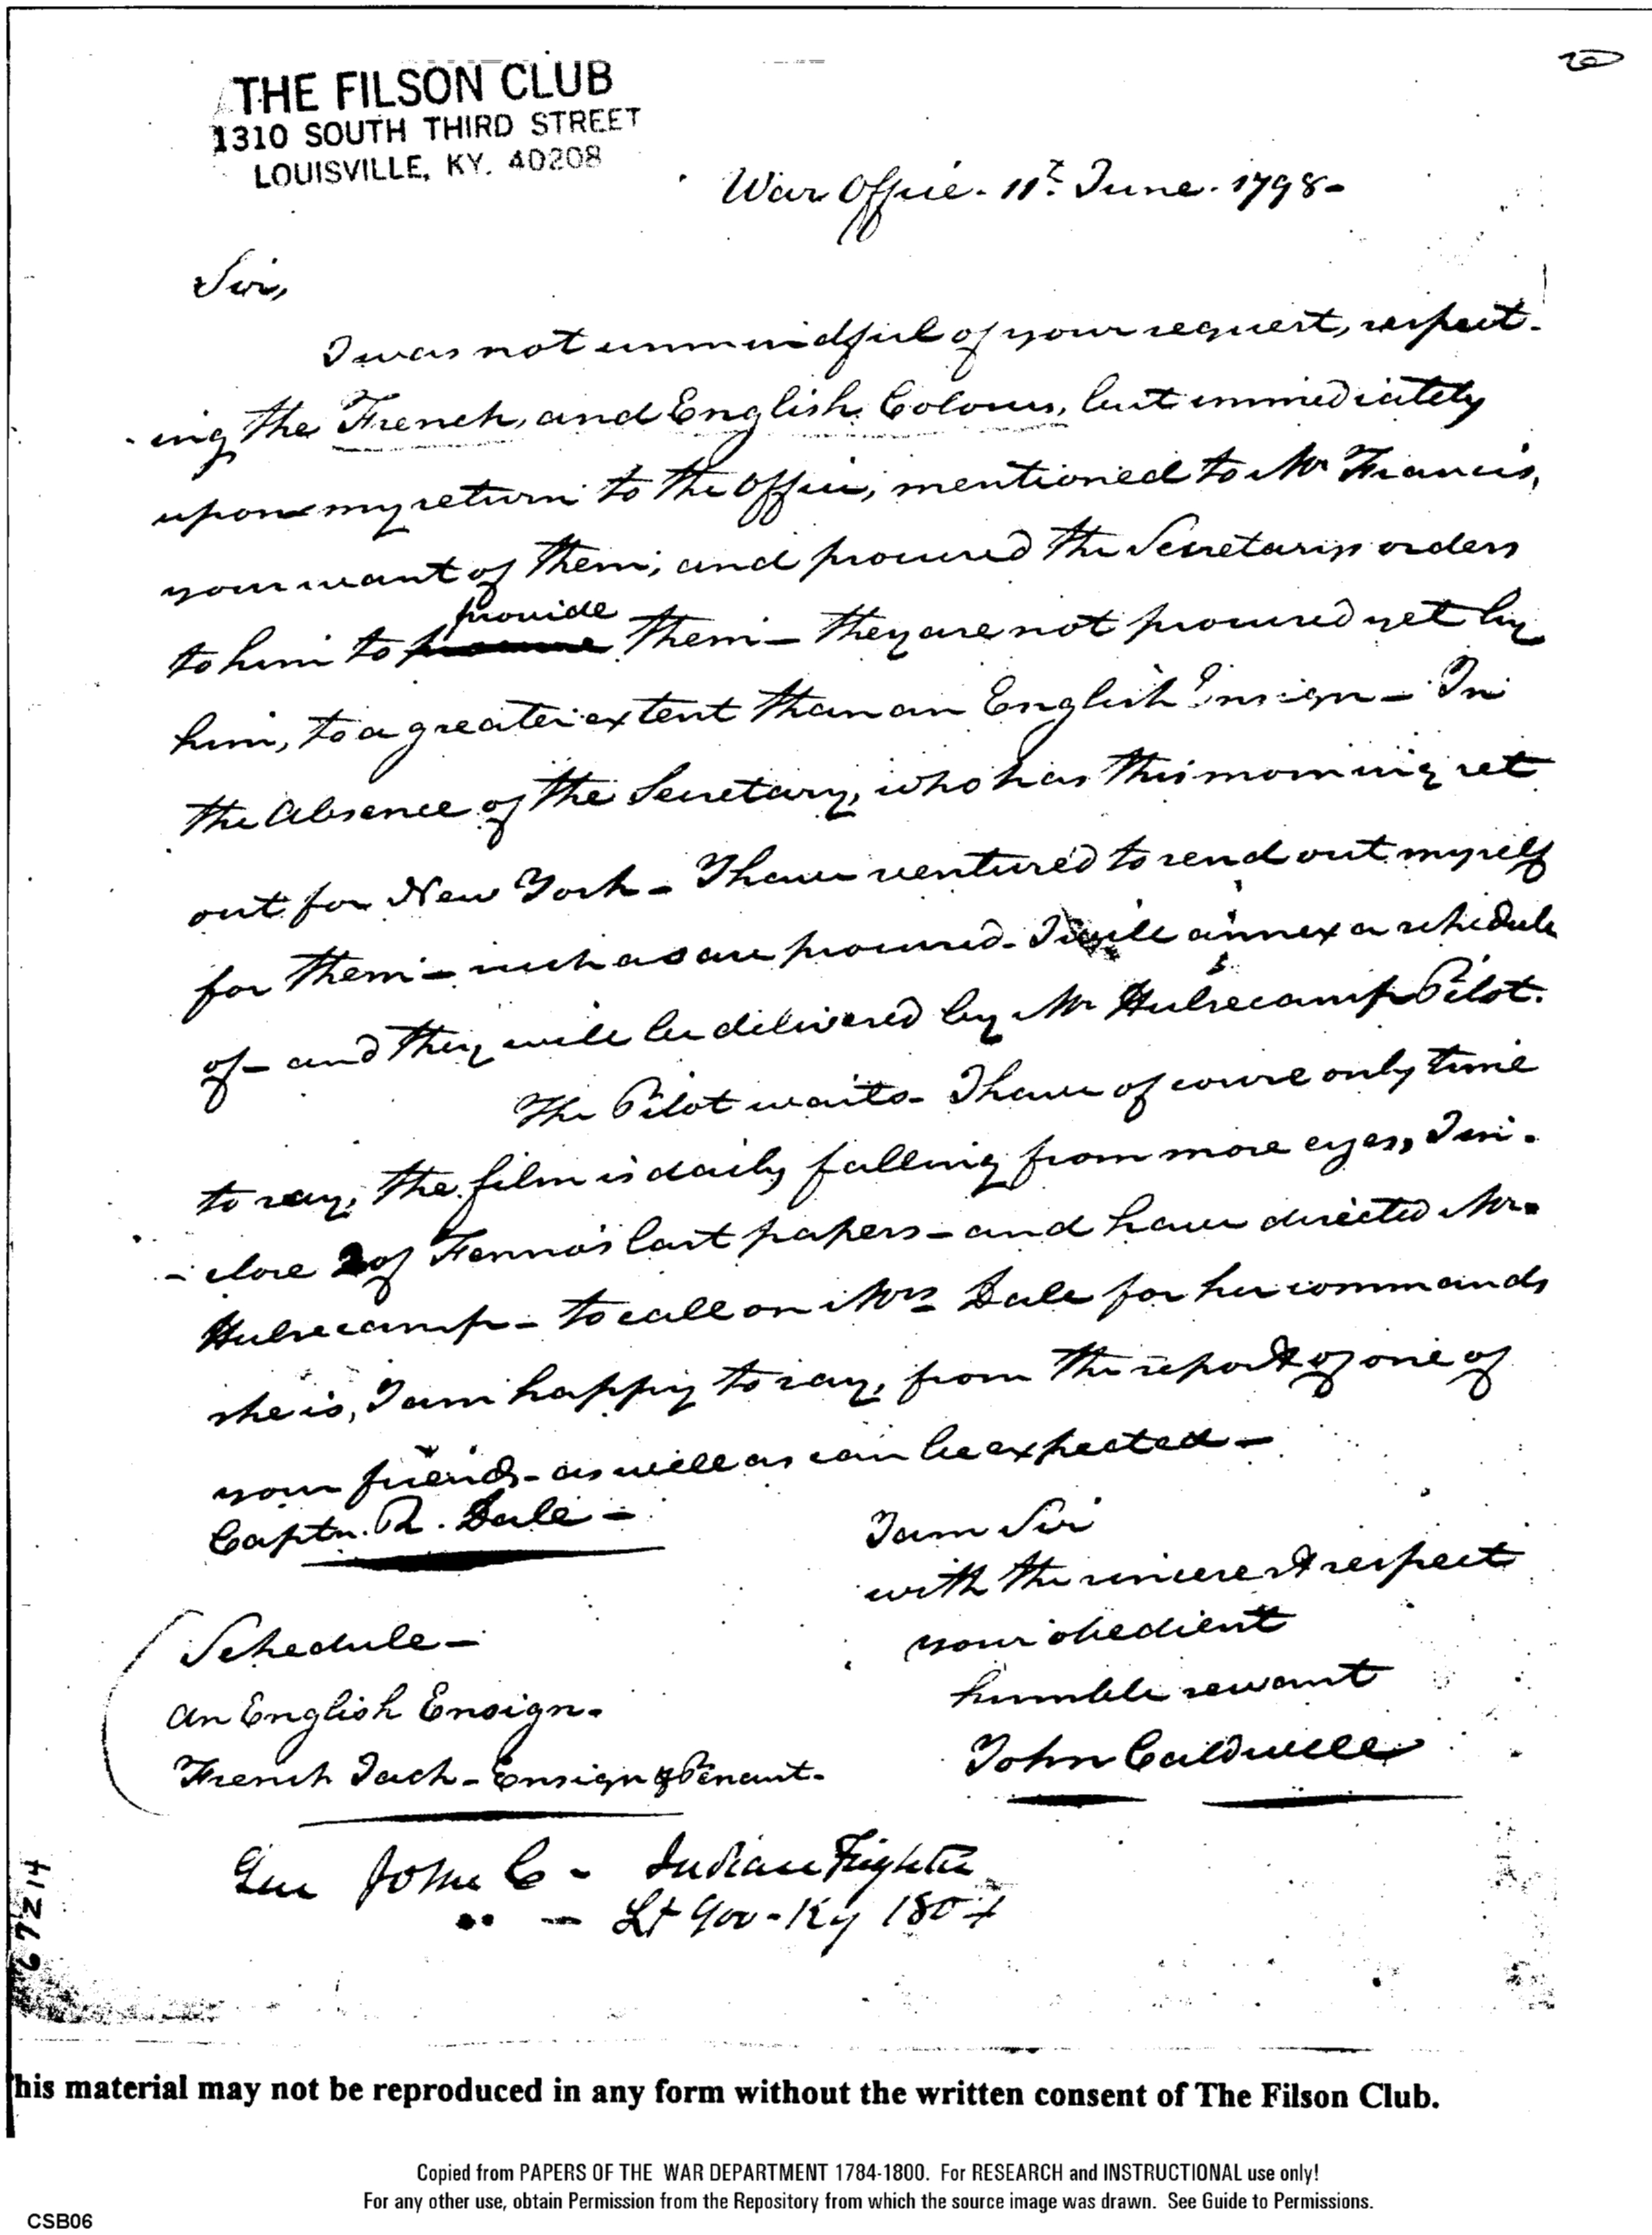 THE FILSON CLUB
1310 SOUTH THIRD STREET
LOUISVILLE, KY. 40208
War Office. 11t. June. 1798-
Sir,
I was not unmindful of your request, respect-
-ing the French, and English Colours, but immediately
upon my return to the Office, mentioned to Mr Francis,
your want of them; and procured the Secretarys orders
to him to procure provide them - they are not procured yet by
him, to a greater extent than an English Ensign - In
the Absence of the Secretary, who has this morning set
out for New York - I have ventured to send out myself
for them - such as are procured. I will annex a schedule
of - and they will be delivered by Mr Hulsecamp Pilot.
The Pilot waits - I have of course only time
to say, the film is daily falling from more eyes, I in-
-close 2 of Fenno's last papers - and have directed Mr.
Hulsecamp - to call on Mrs Dale for her commands
she is, I am happy to say, from the report of one of
your friends - as well as can be expected -
Captn. R. Dale -
I am Sir
with the sincerest respect
your obedient
humble servant
John Caldwell
Schedule -
An English Ensign.
French Jack - Ensign & Penant.
Gen John C - Indian Fighter
" - Lt Gov - Ky 1804
67Z14
his material may not be reproduced in any form without the written consent of The Filson Club.
Copied from PAPERS OF THE WAR DEPARTMENT 1784-1800. For RESEARCH and INSTRUCTIONAL use only!
For any other use, obtain Permission from the Repository from which the source image was drawn. See Guide to Permissions.
CSB06